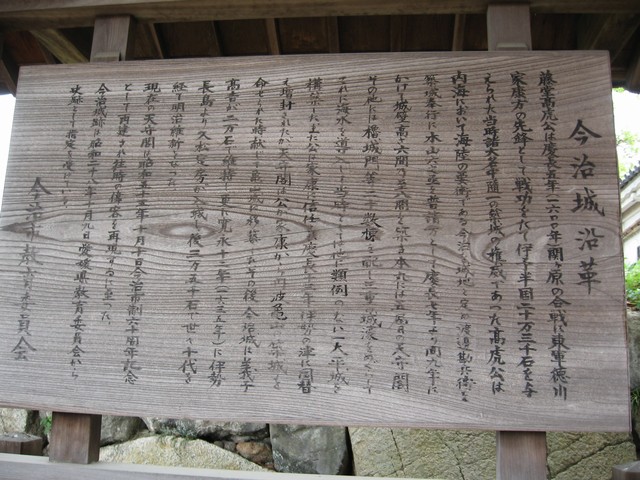 今治城沿革
藤堂高虎公は慶長五年(一六〇〇年)関ヶ原の合戦に東軍徳川
家康方の先鋒として戦功をたて伊予半国二十万三千石を与
えられた当時諸大名中随一の築城の権威であった高虎公は
内海において海陸の要衝である今治の現地を定め渡邊勘兵衛を
築城奉行に木山六之丞を普請 として慶長七年より 九年に
かけ 城壁高 六間 を築 本丸には五層の天守閣
その他に櫓城門等二 数棟を配し三重の城濠をめぐらして
これに海水を導入し当時 他に類例のない一大平城を
構築した 公は家康の信任 慶長十三年伊勢の津に国替
え増封されたが天守閣は公が家康から丹波亀山 築城を
命ぜられた時献 城に移築 その後今治城には義子
高吉が二万石を維持し更に寛永十二年(一六三五年)に伊勢
長島より久松定房が入城し後三万五千石 世々十代を
経て明治維新となった
現在の天守閣は昭和五十五年十月十日今治市制六十周年記念
として再建され往時の偉容を再現するに至った
今治城跡は昭和二十八年十月九日愛媛県教育委員会から
史跡として指定を受けている
今治市教育委員会